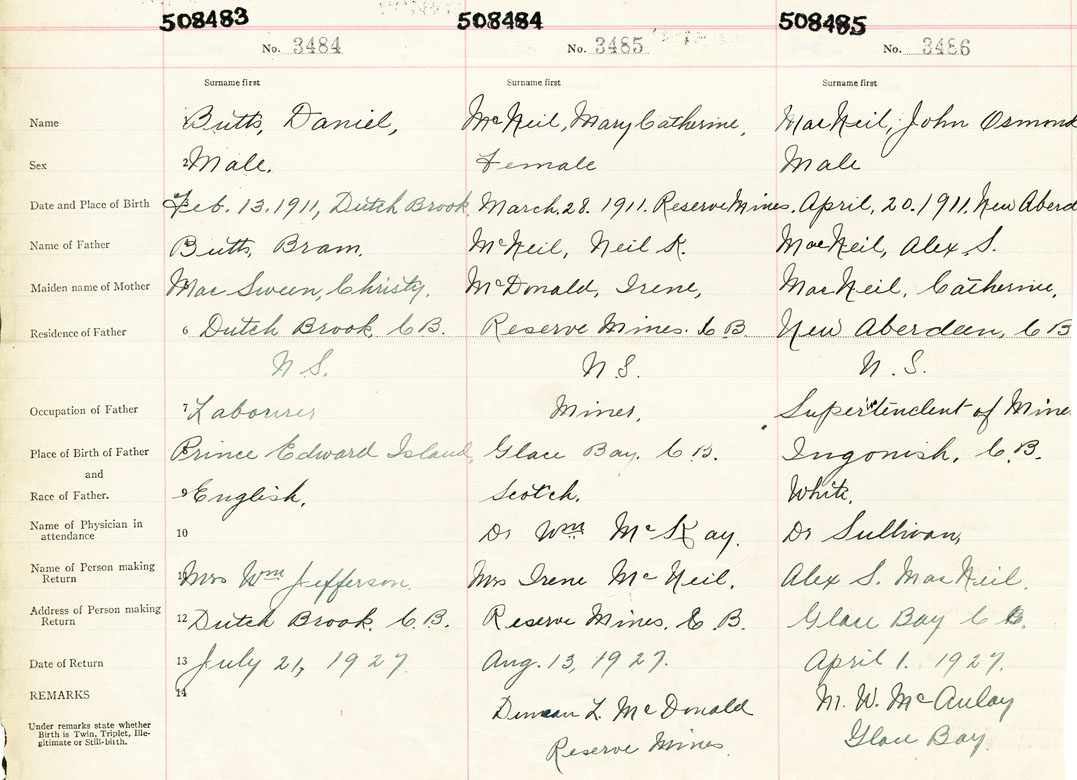 508483 508484 508485
No. 3484 No. 3485 No. 3486
Surname first Surname first Surname first
Name Butts, Daniel, McNeil, Mary Catherine, MacNeil, John Osmond
Sex 2 Male. Female Male
Date and Place of Birth Feb. 13. 1911, Dutch Brook. March, 28. 1911. Reserve Mines. April, 20. 1911. New Aberd
Name of Father Butts, Bram. McNeil, Neil K. MacNeil, Alex S.
Maiden name of Mother Mac Sween, Christy. McDonald, Irene, MacNeil, Catherine,
Residence of Father 6 Dutch Brook. C B. Reserve Mines. C B New Aberdeen, C B
N S. N S. N. S.
Occupation of Father 7 Labourer Miner, Superintendent of Mine
Place of Birth of Father Prince Edward Island, Glace Bay. C B. Ingonish, C. B.
and
Race of Father. 9 English, Scotch, White,
Name of Physician in
attendance 10 Dr Wm McKay. Dr Sullivan,
Name of Person making
Return 11 Mrs Wm Jefferson. Mrs Irene McNeil, Alex S. MacNeil,
Address of Person making
Return 12 Dutch Brook. C. B. Reserve Mines. C B. Glace Bay C B.
Date of Return 13 July 21, 1927. Aug. 13, 1927. April 1. 1927.
REMARKS 14 Duncan L. McDonald M. W. McAulay
Under remarks state whether
Birth is Twin, Triplet, Ille-
gitimate or Still-birth. Reserve Mines. Glace Bay